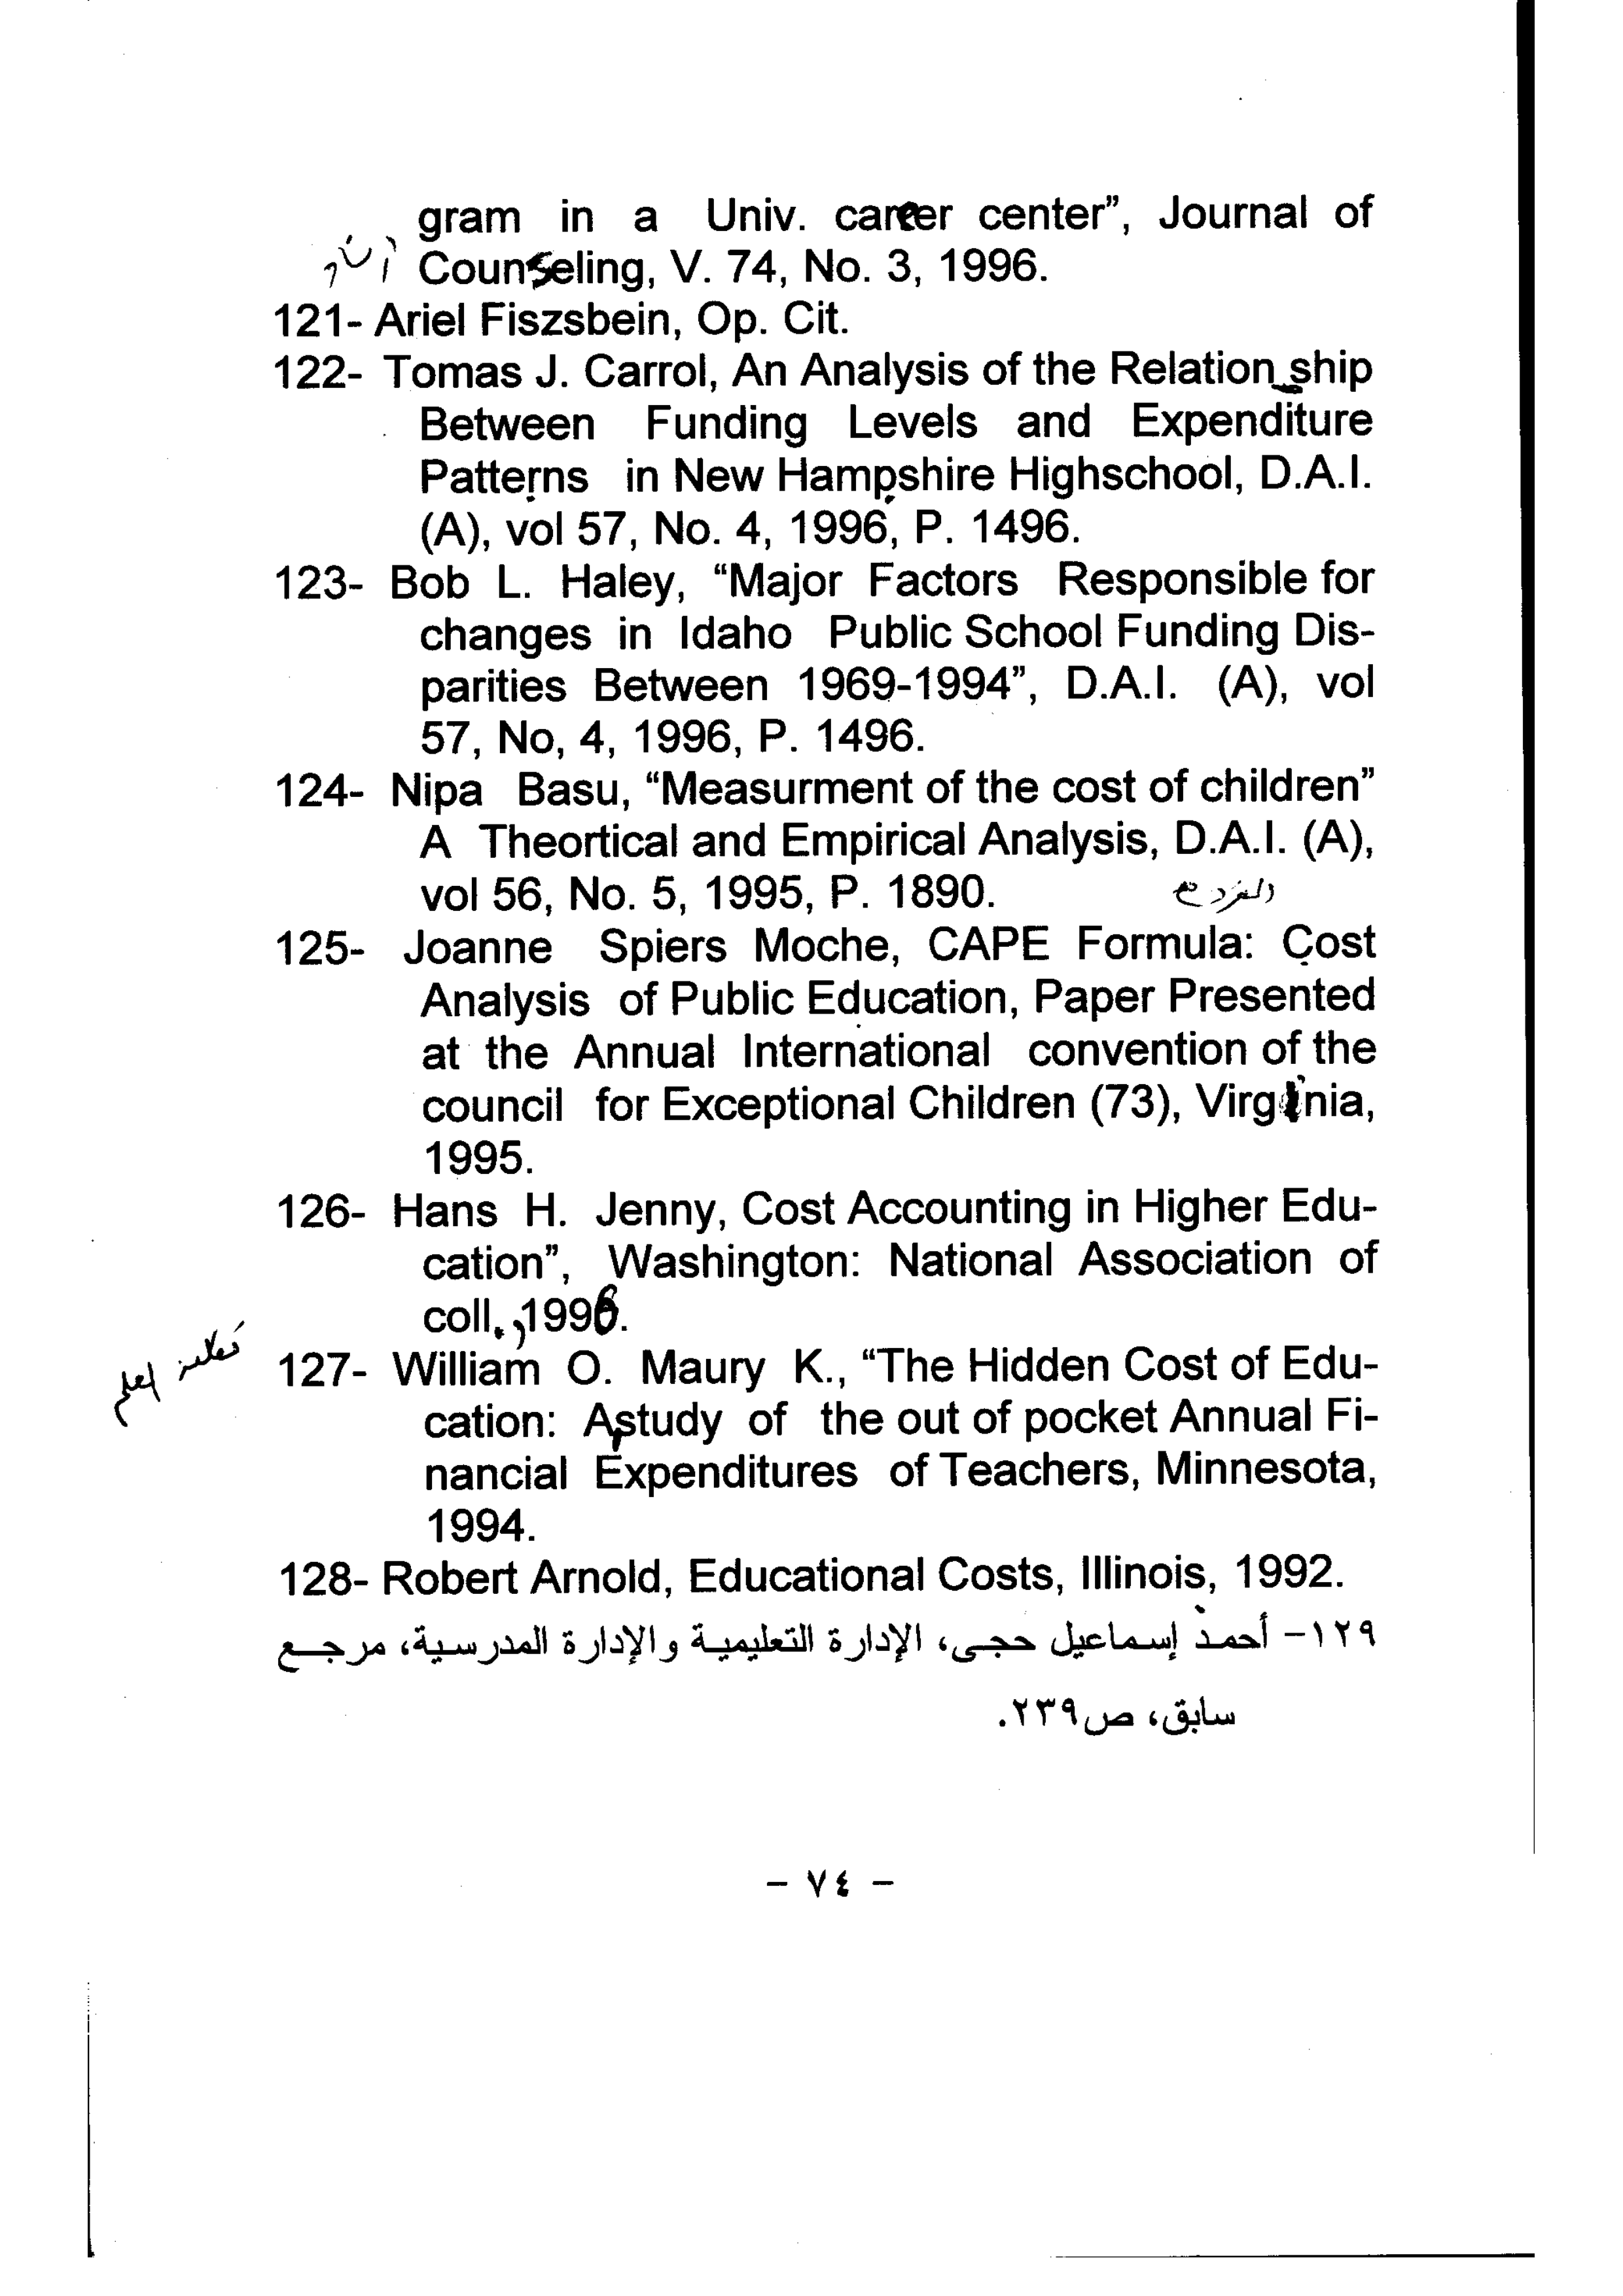 gram in a Univ. career center”, Journal of
Counseling, V. 74, No. 3, 1996.
121- Ariel Fiszsbein, Op. Cit.
122- Tomas J. Carrol, An Analysis of the Relation ship
Between Funding Levels and Expenditure
Patterns in New Hampshire Highschool, D.A.I.
(A), vol 57, No. 4, 1996, P. 1496.
123- Bob L. Haley, “Major Factors Responsible for
changes in Idaho Public School Funding Dis-
parities Between 1969-1994”, D.A.I. (A), vol
57, No, 4, 1996, P. 1496.
124- Nipa Basu, “Measurment of the cost of children”
A Theortical and Empirical Analysis, D.A.I. (A),
vol 56, No. 5, 1995, P. 1890.
125- Joanne Spiers Moche, CAPE Formula: Cost
Analysis of Public Education, Paper Presented
at the Annual International convention of the
council for Exceptional Children (73), Virginia,
1995.
126- Hans H. Jenny, Cost Accounting in Higher Edu-
cation”, Washington: National Association of
coll., 1996.
127- William O. Maury K., “The Hidden Cost of Edu-
cation: A study of the out of pocket Annual Fi-
nancial Expenditures of Teachers, Minnesota,
1994.
128- Robert Arnold, Educational Costs, Illinois, 1992.
١٢٩- أحمد إسماعيل حجى، الإدارة التعليمية والإدارة المدرسية، مرجع
سابق، ص٢٣٩.
- ٧٤ -